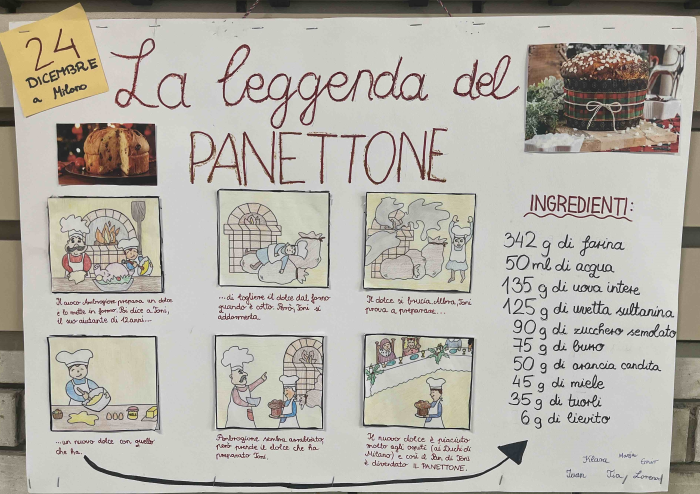 24
DICEMBRE
a Milano
La leggenda del
PANETTONE
Il cuoco Ambrogione prepara un dolce
e lo mette in forno. Poi dice a Toni,
il suo aiutante di 12 anni...
...di togliere il dolce dal forno
quando è cotto. Però, Toni si
addormenta.
Il dolce si brucia. Allora, Toni
prova a preparare...
...un nuovo dolce con quello
che ha.
Ambrogione sembra arrabbiato,
però prende il dolce che ha
preparato Toni.
Il nuovo dolce è piaciuto
molto agli ospiti (ai Duchi di
Milano) e così il Pan di Toni
è diventato il PANETTONE.
INGREDIENTI:
342 g di farina
50 ml di acqua
135 g di uova intere
125 g di uvetta sultanina
90 g di zucchero semolato
75 g di burro
50 g di arancia candita
45 g di miele
35 g di tuorli
6 g di lievito
Klara
Tia